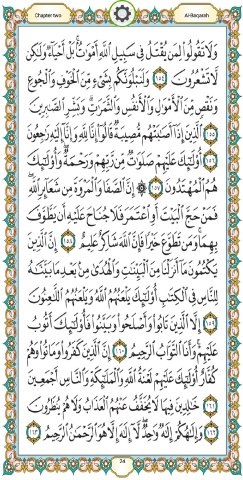 Chapter two
Al-Baqarah
وَلَا نَقُولُوا لِمَن يُقْتَلُ فِي سَبِيلِ اللَّهِ أَمْوَاتٌ بَلْ أَحْيَاءٌ وَلَٰكِن
لَّا تَشْعُرُونَ ١٥٤ وَلَنَبْلُوَنَّكُم بِشَيْءٍ مِّنَ الْخَوْفِ وَالْجُوعِ
وَنَقْصٍ مِّنَ الْأَمْوَالِ وَالْأَنفُسِ وَالثَّمَرَاتِ وَبَشِّرِ الصَّابِرِينَ
١٥٥ الَّذِينَ إِذَا أَصَابَتْهُم مُّصِيبَةٌ قَالُوا إِنَّا لِلَّهِ وَإِنَّا إِلَيْهِ رَاجِعُونَ
١٥٦ أُولَٰئِكَ عَلَيْهِمْ صَلَوَاتٌ مِّن رَّبِّهِمْ وَرَحْمَةٌ وَأُولَٰئِكَ
هُمُ الْمُهْتَدُونَ ١٥٧ ۞ إِنَّ الصَّفَا وَالْمَرْوَةَ مِن شَعَائِرِ اللَّهِ
فَمَنْ حَجَّ الْبَيْتَ أَوِ اعْتَمَرَ فَلَا جُنَاحَ عَلَيْهِ أَن يَطَّوَّفَ
بِهِمَا وَمَن تَطَوَّعَ خَيْرًا فَإِنَّ اللَّهَ شَاكِرٌ عَلِيمٌ ١٥٨ إِنَّ الَّذِينَ
يَكْتُمُونَ مَا أَنزَلْنَا مِنَ الْبَيِّنَاتِ وَالْهُدَىٰ مِن بَعْدِ مَا بَيَّنَّاهُ
لِلنَّاسِ فِي الْكِتَابِ أُولَٰئِكَ يَلْعَنُهُمُ اللَّهُ وَيَلْعَنُهُمُ اللَّاعِنُونَ
١٥٩ إِلَّا الَّذِينَ تَابُوا وَأَصْلَحُوا وَبَيَّنُوا فَأُولَٰئِكَ أَتُوبُ
عَلَيْهِمْ وَأَنَا التَّوَّابُ الرَّحِيمُ ١٦٠ إِنَّ الَّذِينَ كَفَرُوا وَمَاتُوا وَهُمْ
كُفَّارٌ أُولَٰئِكَ عَلَيْهِمْ لَعْنَةُ اللَّهِ وَالْمَلَائِكَةِ وَالنَّاسِ أَجْمَعِينَ
١٦١ خَالِدِينَ فِيهَا لَا يُخَفَّفُ عَنْهُمُ الْعَذَابُ وَلَا هُمْ يُنظَرُونَ
١٦٢ وَإِلَٰهُكُمْ إِلَٰهٌ وَاحِدٌ لَّا إِلَٰهَ إِلَّا هُوَ الرَّحْمَٰنُ الرَّحِيمُ ١٦٣
24